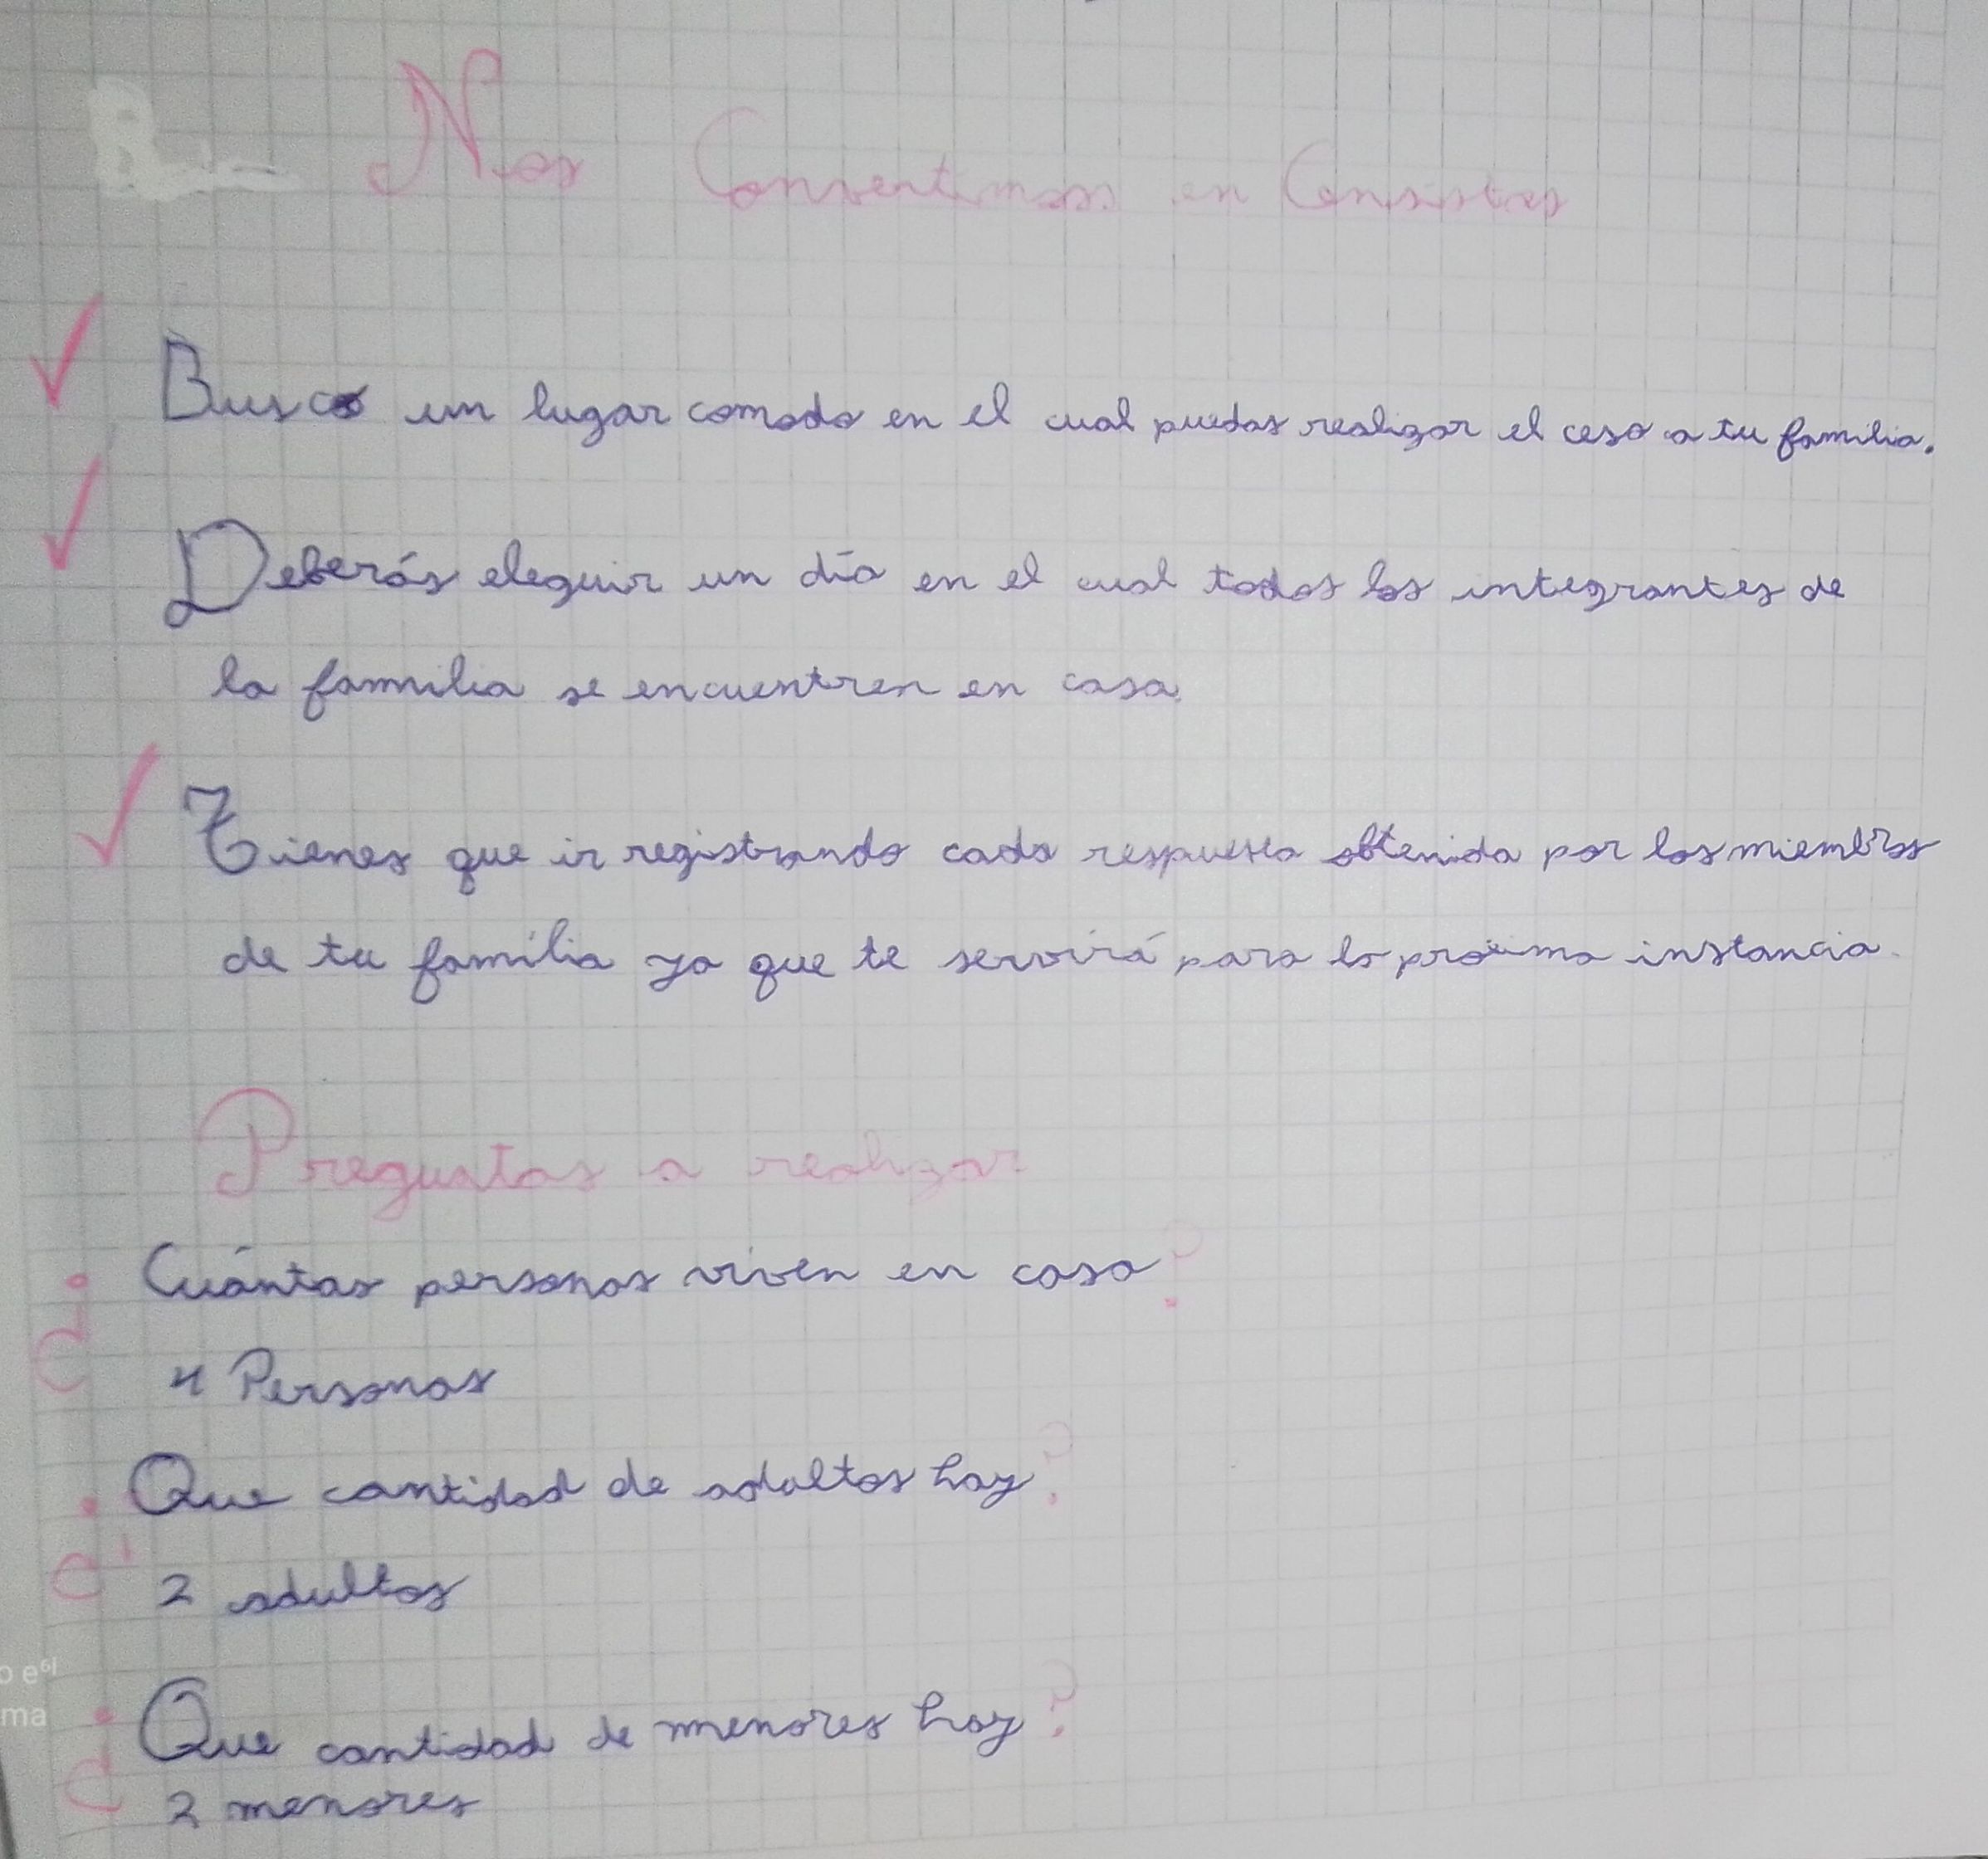 Nos Convertimos en Censistas
✓ Busca un lugar comodo en el cual puedas realizar el ceso a tu familia.
✓ Deberás eleguir un día en el cual todos los integrantes de
la familia se encuentren en casa.
✓ Tienes que ir registrando cada respuesta obtenida por los miembros
de tu familia ya que te servirá para la proxima instancia.
Preguntas a realizar
¿Cuántas personas viven en casa?
4 Personas
¿Que cantidad de adultos hay?
2 adultos
¿Que cantidad de menores hay?
2 menores